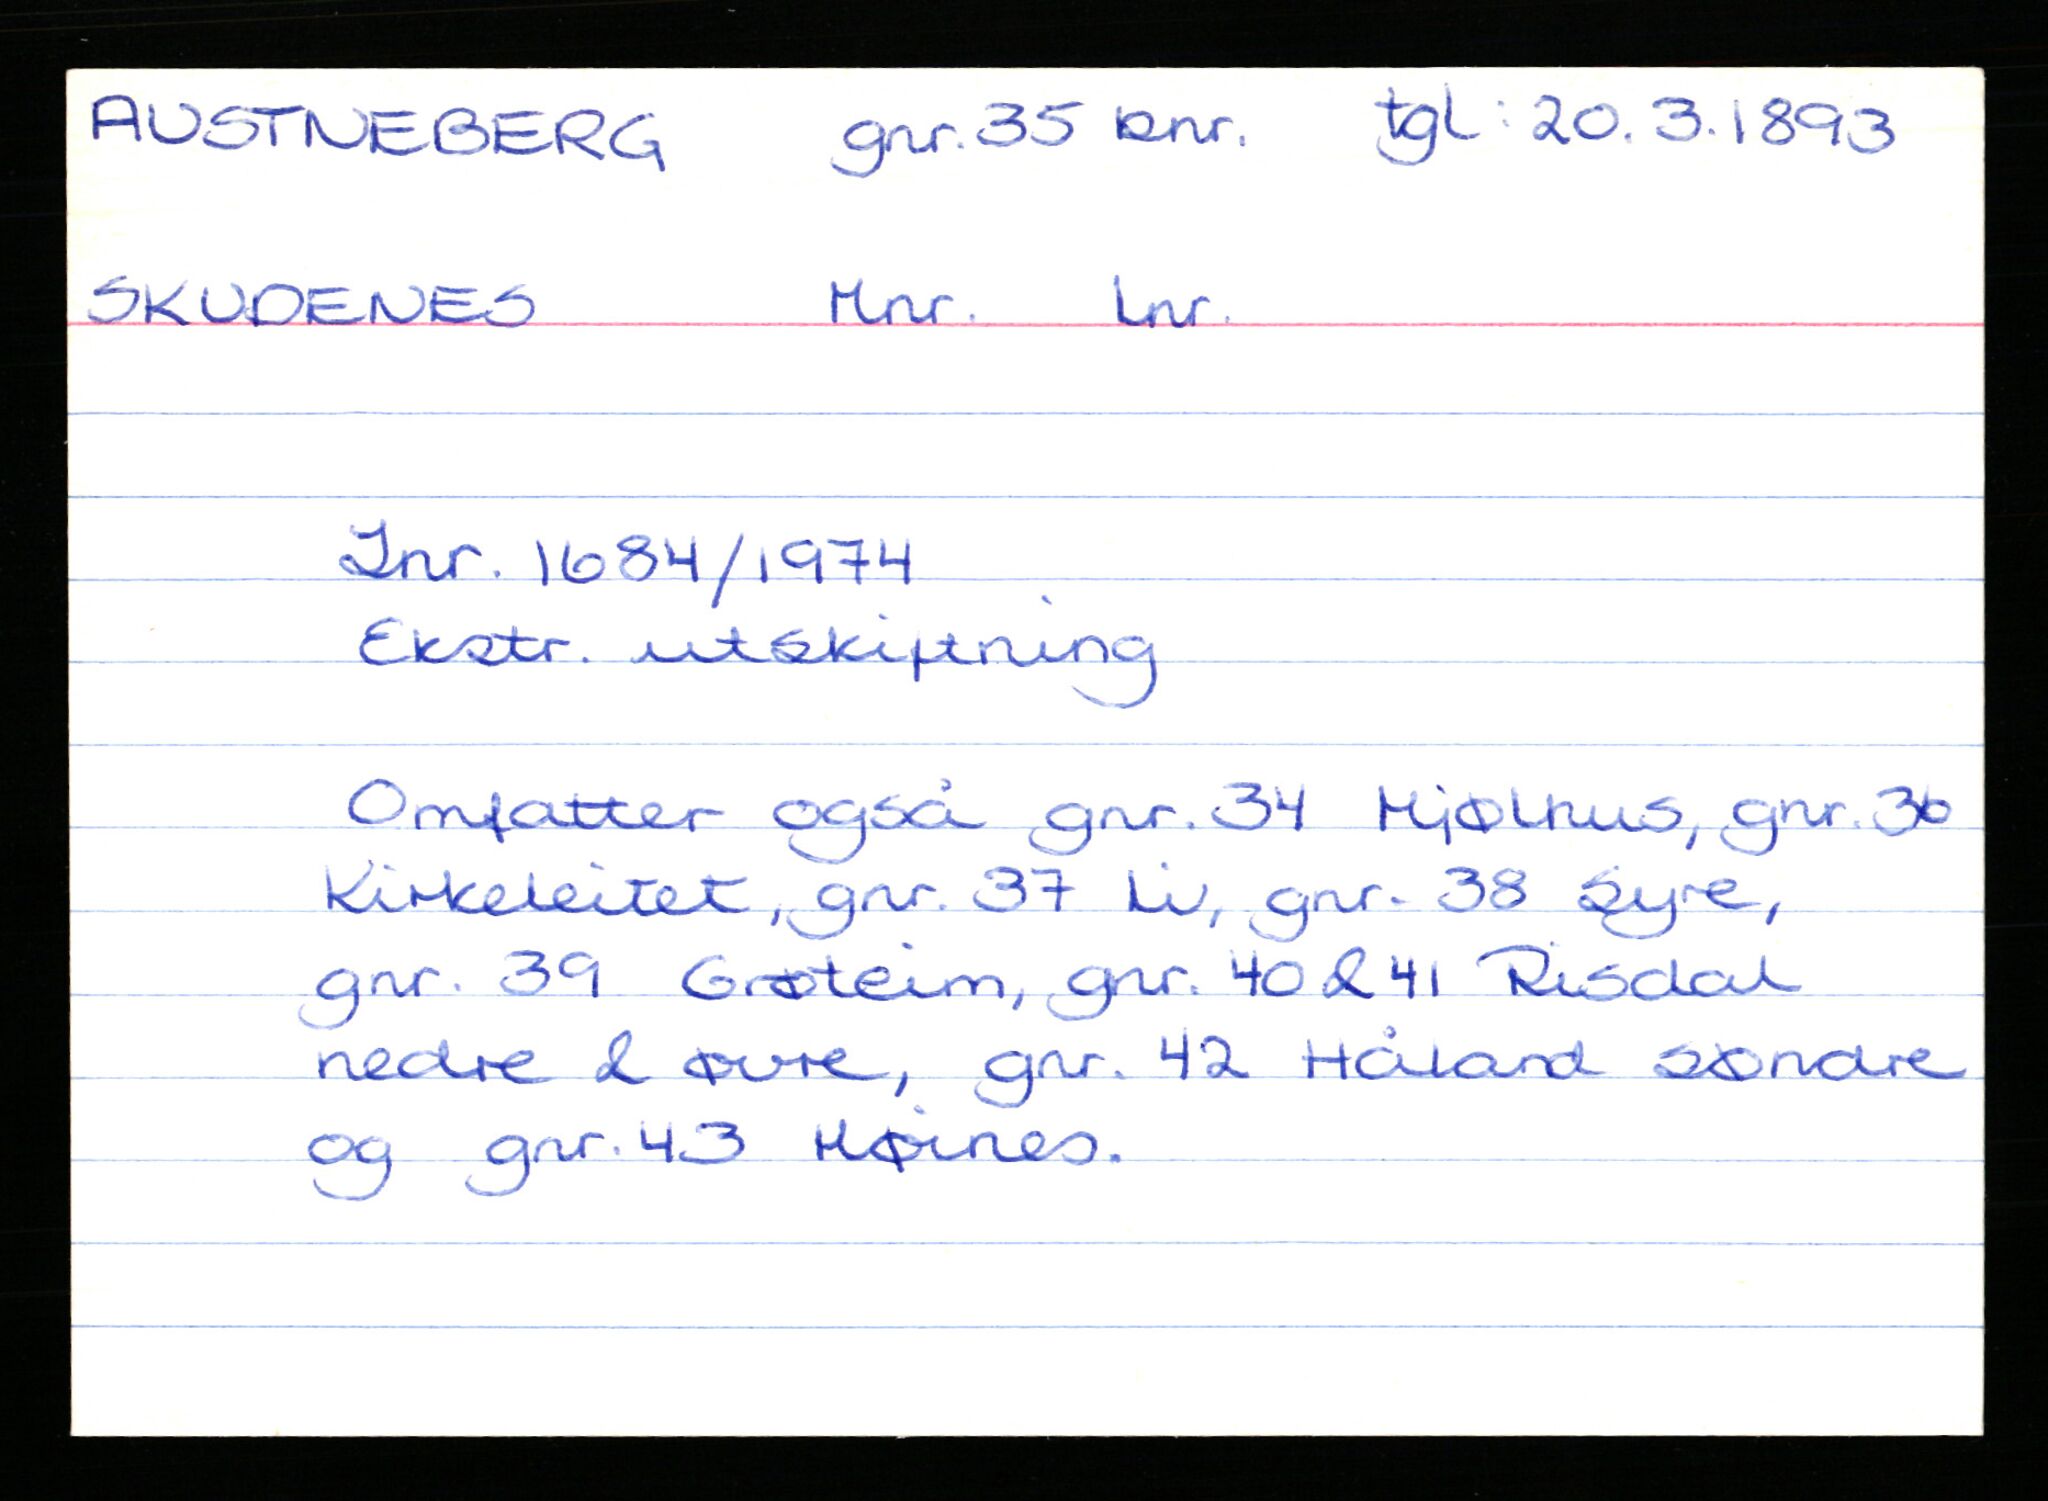 AUSTNEBERG gnr. 35 bnr. tgl: 20. 3. 1893
SKUDENES Mnr. Lnr.
Jnr. 1684/1974
Ekstr. utskiftning
Omfatter også gnr. 34 Mjølhus, gnr. 36
Kirkeleitet, gnr. 37 Li, gnr. 38 Syre,
gnr. 39 Grøteim, gnr. 40 & 41 Risdal
nedre & øvre, gnr. 42 Håland søndre
og gnr. 43 Høines.